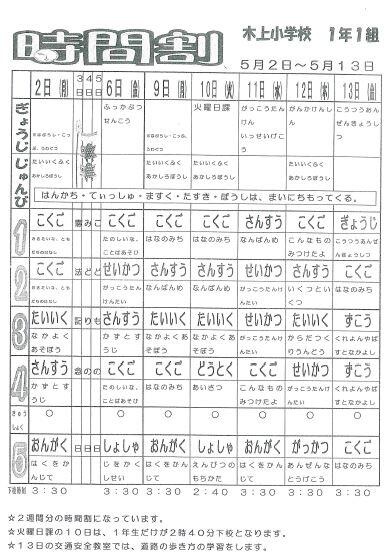 時間割
木上小学校 1年1組
5月2日～5月13日
2日(月) 3日 4日 5日 6日(金) 9日(月) 10日(火) 11日(水) 12日(木) 13日(金)
ぎょうじ
ふっかぶつ
せんこう
火曜日課
がっこうたんけん
いっせいげこう
がんかけんしん
こうつうあんぜんきょうしつ
じゅんび
たいいくふく
あかしろぼうし
たいいくふく
あかしろぼうし
たいいくふく
あかしろぼうし
はんかち・てぃっしゅ・ますく・たすき・ぼうしは、まいにちもってくる。
1 こくご 憲 み こ こくご こくご こくご さんすう こくご ぎょうじ
たのしいな、ことばあそび
はなのみち
はなのみち
なんばんめ
こんなものみつけたよ
こうつうあんぜんきょうしつ
2 こくご 法 ど ど せいかつ さんすう さんすう せいかつ さんすう こくご
がっこうたんけんたい
なんばんめ
なんばんめ
がっこうたんけんたい
いくつといくつ
はなのみち
3 たいいく 記 り も さんすう たいいく さんすう せいかつ たいいく ずこう
なかよくあそぼう
かずとすうじ
なかよくあそぼう
なんばんめ
がっこうたんけんたい
からだつくりうんどう
くれよんやぱすとなかよし
4 さんすう 念 の の こくご こくご どうとく こくご せいかつ ずこう
かずとすうじ
たのしいな、ことばあそび
はなのみち
あいさつ
こんなものみつけたよ
がっこうたんけんたい
くれよんやぱすとなかよし
きゅうしょく ○ ○ ○ ○ ○ ○ ○
5 おんがく 日 日 日 しょしゃ おんがく しょしゃ おんがく がっかつ こくご
はくをかんじて
じをかくしせい
はくをかんじて
えんぴつのもちかた
はくをかんじて
はなのみち
下校時刻 3:30 3:30 3:30 2:40 3:30 3:30 3:30
☆2週間分の時間割になっています。
☆火曜日課の10日は、1年生だけが2時40分下校となります。
☆13日の交通安全教室では、道路の歩き方の学習をします。